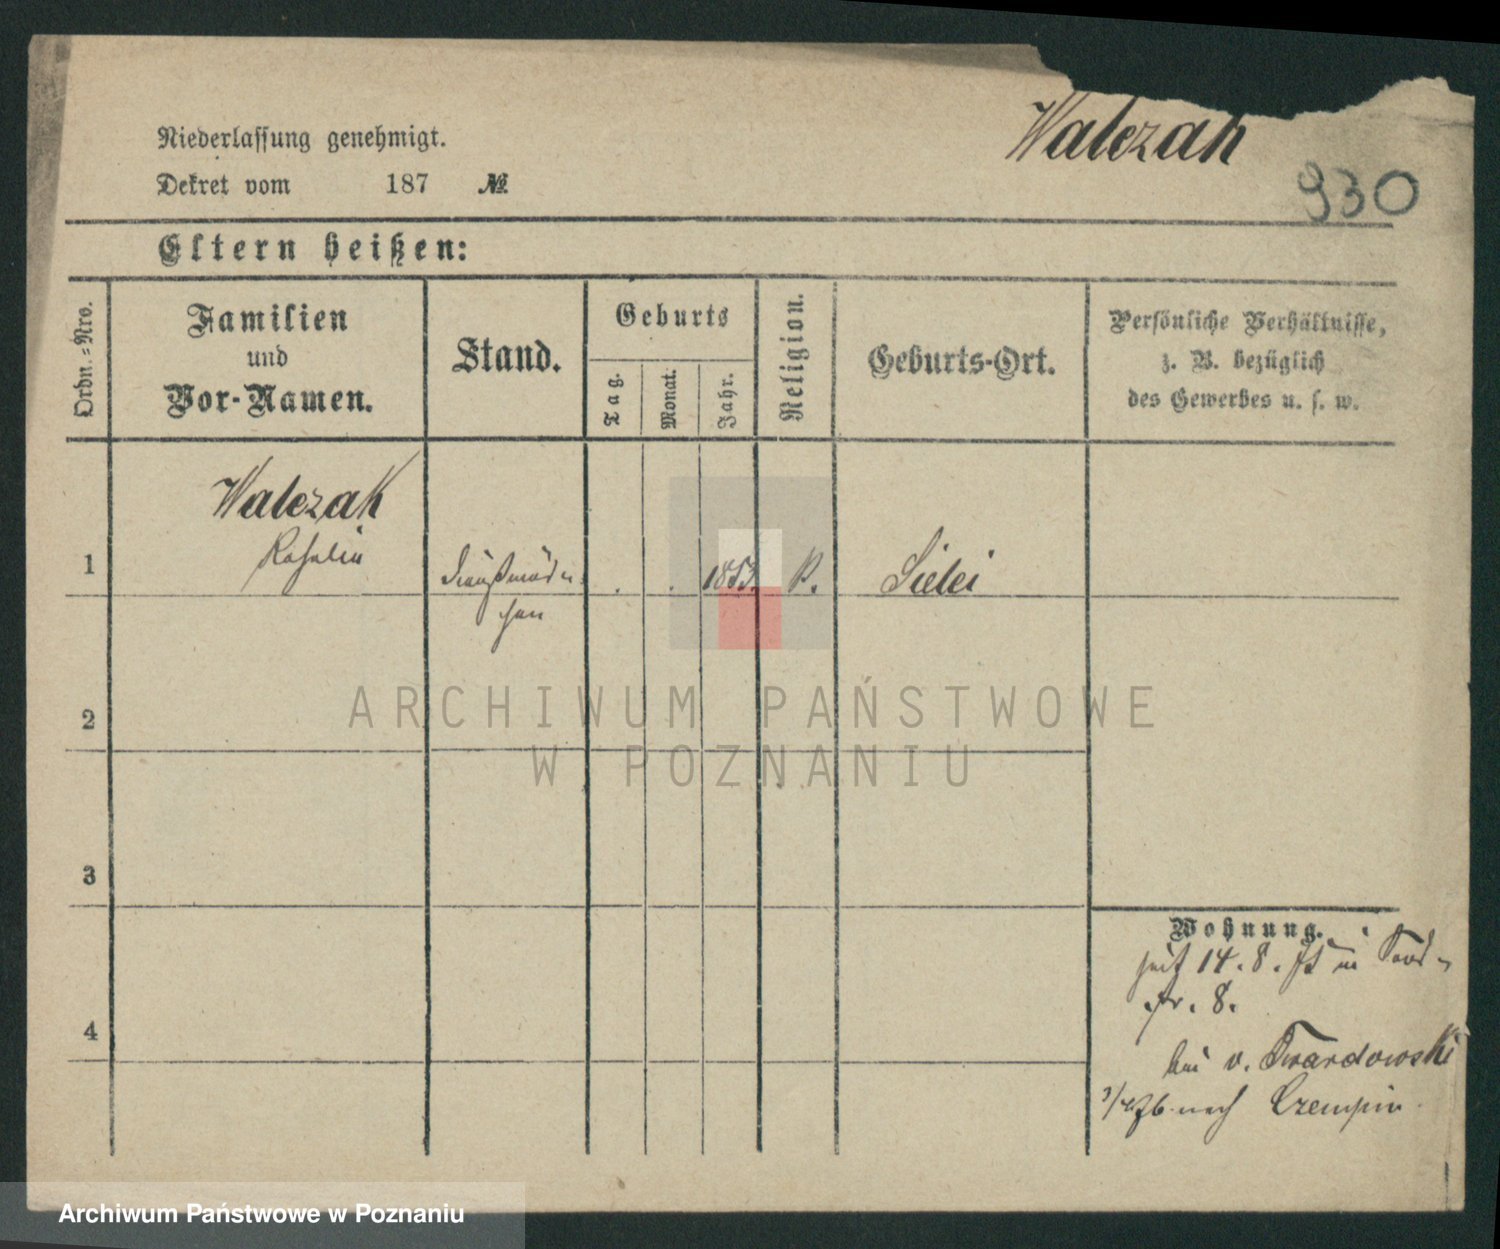 Walczak
930
Niederlassung genehmigt.
Dekret vom 187 №
Eltern heißen:
Ordn.=Nro.
Familien
und
Vor-Namen.
Stand.
Geburts
Tag.
Monat.
Jahr.
Religion.
Geburts-Ort.
Persönliche Verhältnisse,
z. B. bezüglich
des Gewerbes u. s. w.
1
Walczak
Rosalia
1853.
K.
2
3
4
Wohnung.
seit 14. 8. 75 in
str. 8.
bei v. Twardowski
nach Czempin
ARCHIWUM PAŃSTWOWE
W POZNANIU
Archiwum Państwowe w Poznaniu